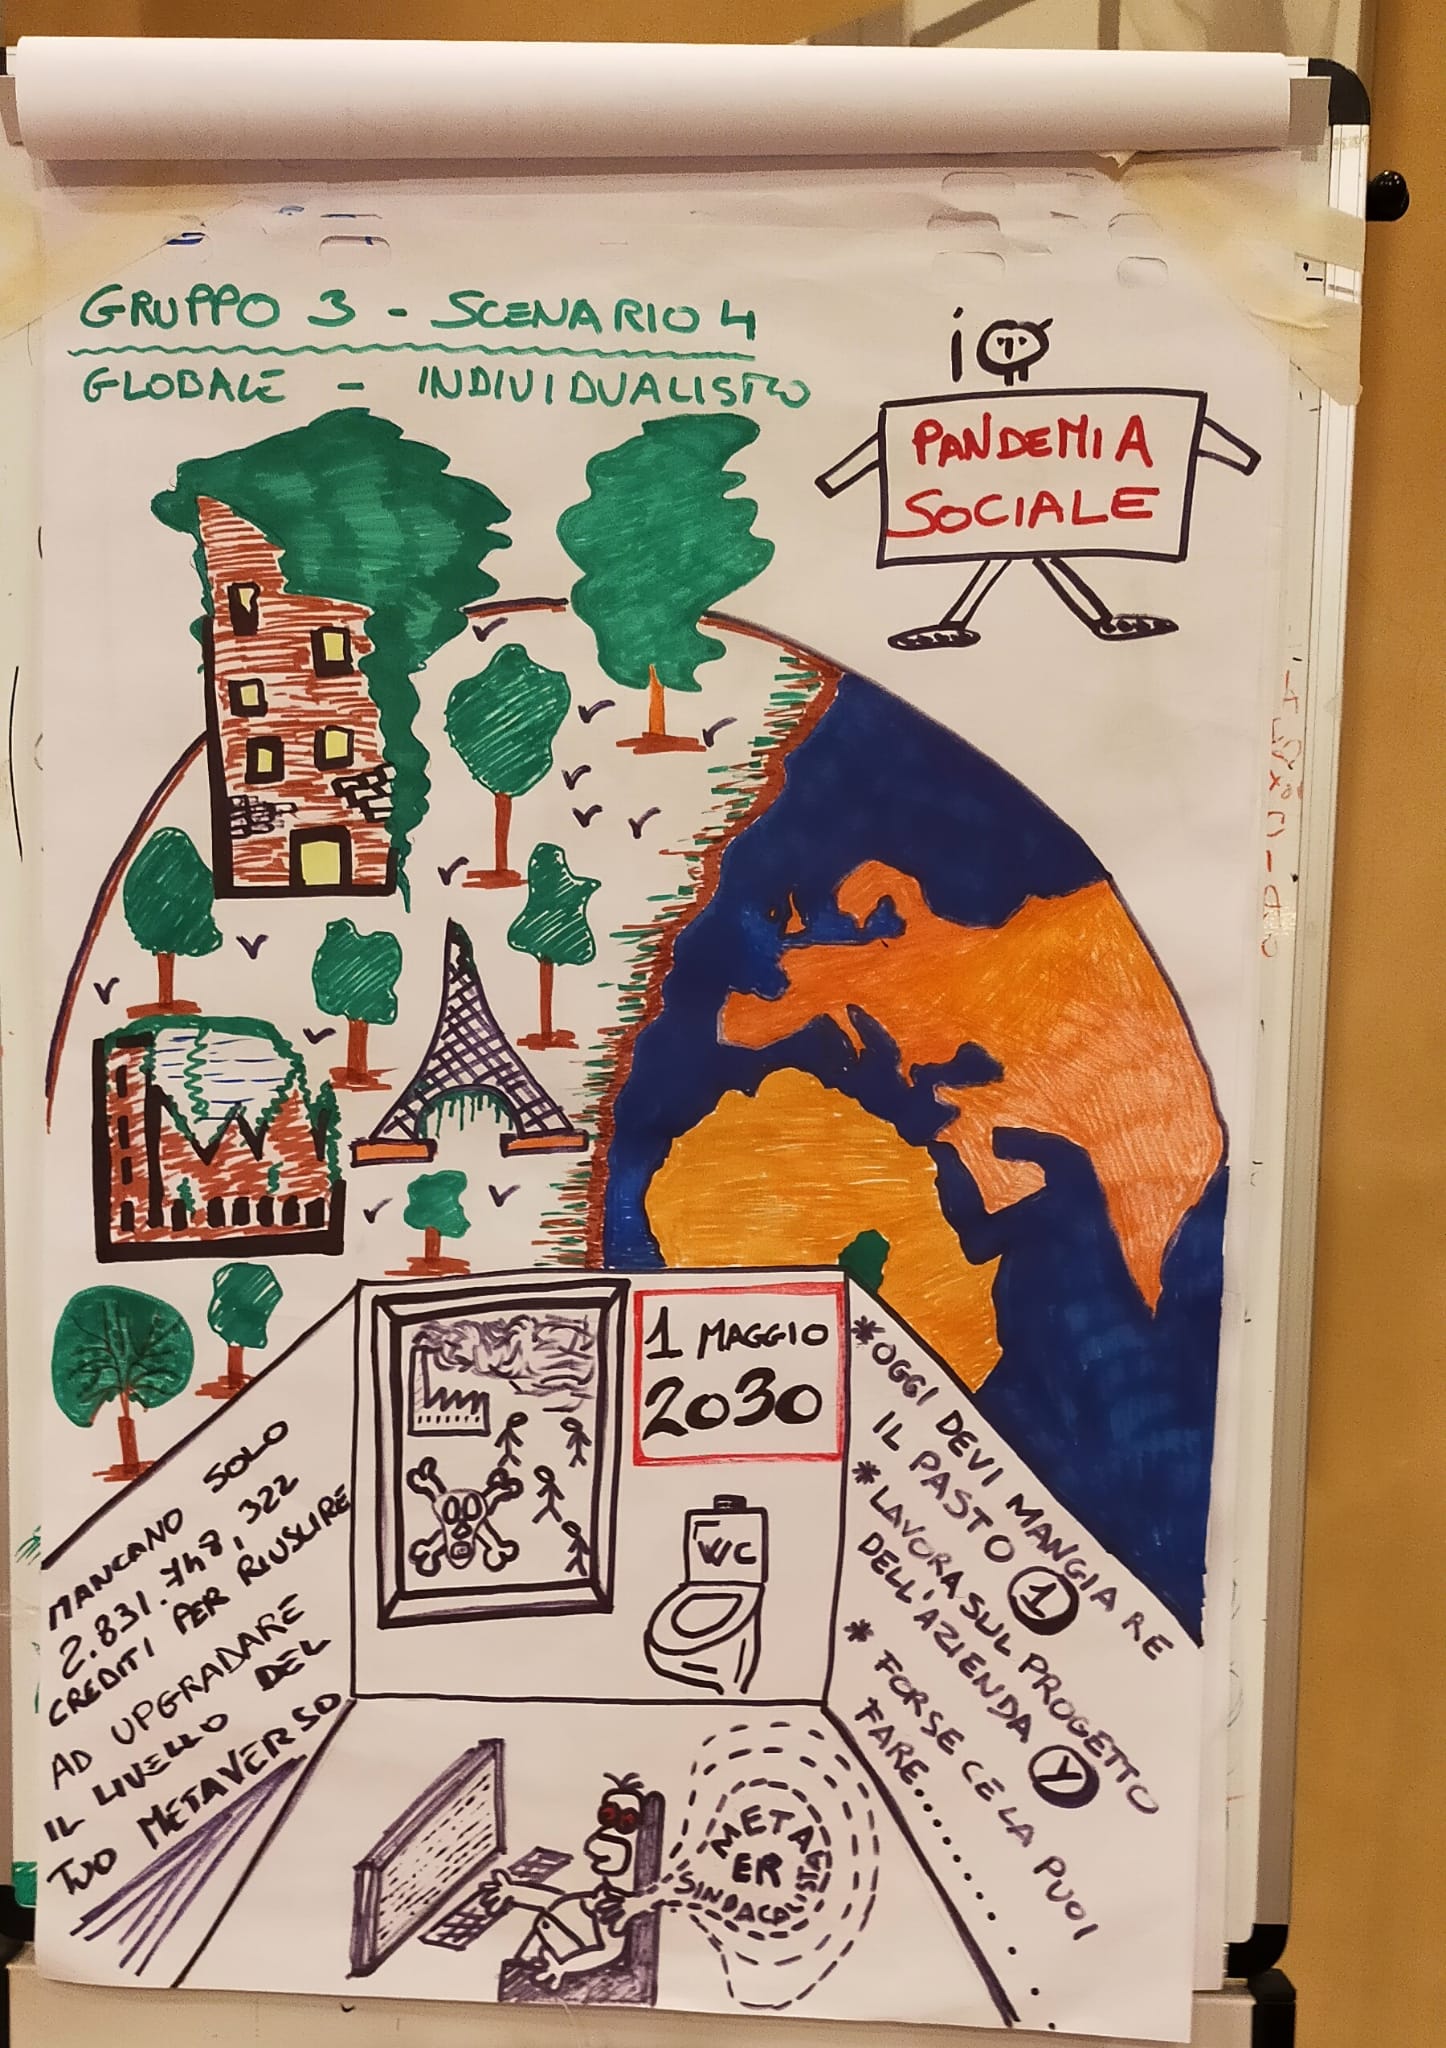 GRUPPO 3 - SCENARIO 4
GLOBALE - INDIVIDUALISTA
PANDEMIA
SOCIALE
1 MAGGIO
2030
WC
MANCANO SOLO
2.831.748,322
CREDITI PER RIUSCIRE
AD UPGRADARE
IL LIVELLO DEL
TUO METAVERSO
*OGGI DEVI MANGIARE
IL PASTO 1
*LAVORA SUL PROGETTO
DELL'AZIENDA Y
* FORSE CE LA PUOI
FARE..........
META
ER
SINDACALISTA